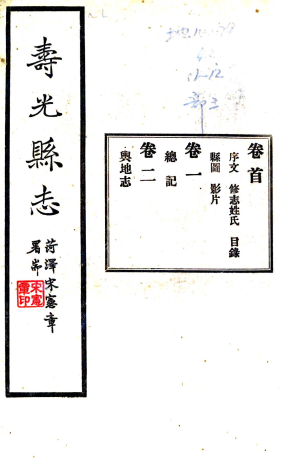 壽光縣志
菏澤宋憲章
署耑
宋憲
章印
卷首
序文 修志姓氏 目錄
縣圖 影片
卷一
總記
卷二
輿地志
11-12